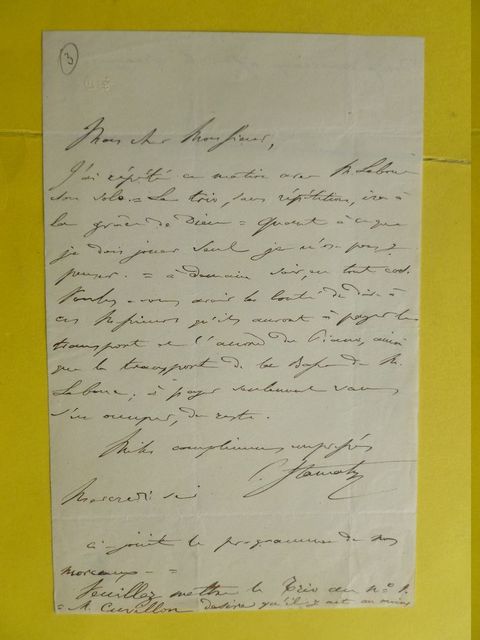 3
Mon cher Monsieur,
J'ai répété ce matin avec M. Lebouc
son solo. = Le trio, sans répétition, ira à
la grâce de Dieu = Quant à ce que
je dois jouer seul je n'ose pas y
penser. = à demain soir, en tout cas.
Voulez-vous avoir la bonté de dire à
ces Messieurs qu'ils auront à payer le
transport et l'accord du Piano, ainsi
que le transport de la Basse de M.
Lebouc; à payer seulement sans
s'en occuper, du reste.
Mille complimens empressés
C. Stamaty
Mercredi soir
ci-joint le programme de nos
morceaux. =
Veuillez mettre le Trio au n° 1.
= M. Cuvillon désire qu'il y ait au moins